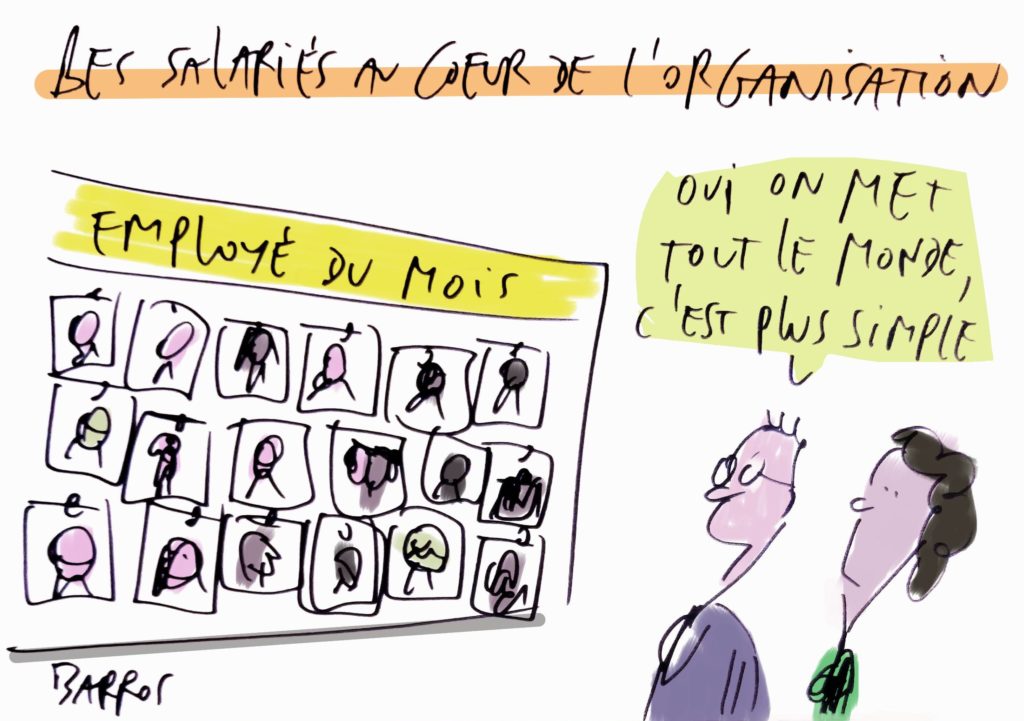 DES SALARIÉS AU COEUR DE L'ORGANISATION
EMPLOYÉ DU MOIS
OUI ON MET
TOUT LE MONDE,
C'EST PLUS SIMPLE
BARROS